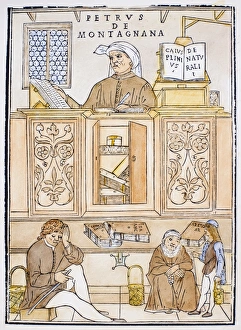 PETRVS
DE
MONTAGNANA
CAIVS
PLINI
VS
DE
NATVR
ALI